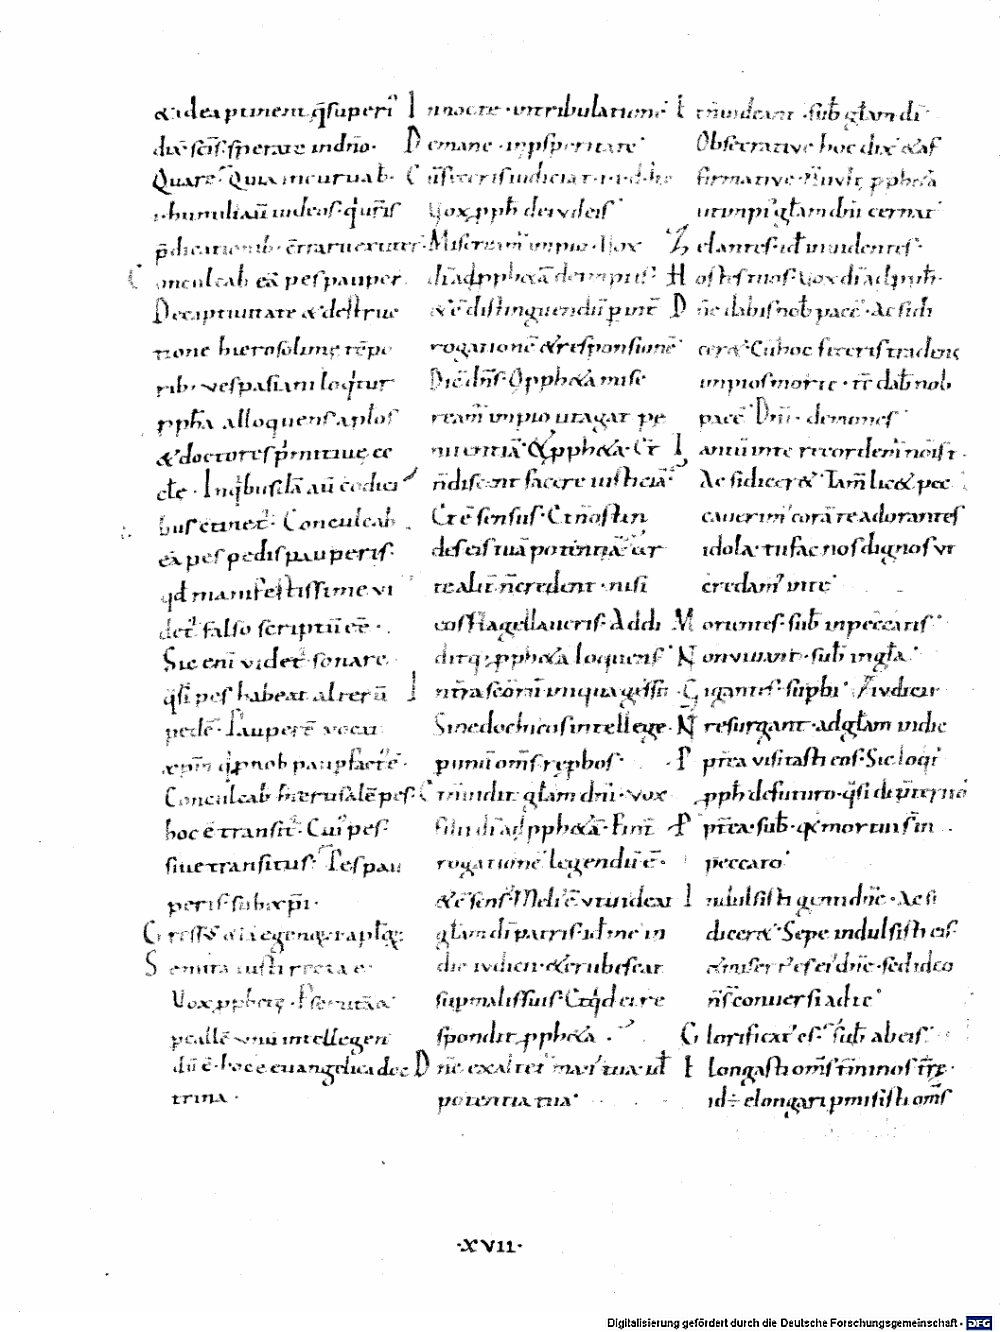 & idea ptinent q̄ superi᷒
dix̄ sc̄is · sperate in dn̄o ·
Quare · Quia incuruab ·
i · humiliau iudeos · q̇ ur̄is
p̄dicationib · errarux
onculcab eā pes pauper
De captiuitate & destruc
tione hierosolimę tēpo
rib · vespasiani loq̇tur
ppha alloquens aplos
& doctores ṗmitiuę ec
clę · In q̇busdā aū codici
bus ctinet̄ · Conculcab
eā pes pedis pauperis ·
qd manifestissime vi
det̄ falso scriptū eē ·
Sic eni videt̄ sonare
q̄si pes habeat alterū
pedē · Pauperē vocat
xpm̄ q̇ p nob paup fact̄ ē ·
Conculcab hierusalē pes ·
hoc ē transit̄ · Cui᷒ pes ·
siue transitus · Pes pau
peris · sub xp̄i ·
Semita iusti recta ē ·
Vox pphetę ·
callē vnū intellegen
dū ē · hoc ē euangelica doc
trina ·
In nocte · in tribulatione᷒
De mane · in psperitate᷒
Cū feceris iudicia t · i · i · d · h
Vox pph de iudeis᷒
Miseream᷒ impio · Vox
di ad pphetā de impiis᷒
& ē distinguendū p int̄
rogationē & responsionē᷒
Dic dn̄s · O ppheta mise
ream᷒ impio ut agat pe
nitentiā · & ppheta · Et
n̄ discent facere iusticiā᷒
Et ē sensus · Et n̄ ostin
deseis tuā potentiā ·
te aliī n̄ credent · nisi
eos flagellaueris · Addi
ditq; ppheta loquens᷒
In trā scōrū iniqua gessit
Sinedochicos intellege ·
punit om̄s rephos᷒
Et n̄ uidit glam dn̄i · vox
filii di ad pphetā · P int̄
rogationē legendū ē ·
& ē sens᷒ · Meli᷒ ē vt uideat
glam di patris · id me in
die iudicii · & erubescat
sup malis suis · Et q̇d ei re
spondit ppheta ·
Dn̄e exaltet᷒ man᷒ tua · id
potentia tua᷒
Et n̄ uideant · sub glam di᷒
Obsecratiue hoc dix̄ & af
firmatiue · N̄ uult ppheta
ut impi᷒ glam dn̄i cernat᷒
Zelantes · id inuidentes ·
Hostes tuos · Vox di ad pph ·
Dn̄e dabis nob pacē · Ac si di
ceret · Cū hoc feceris tradens
impios morte · tc̄ dab nob
pacē᷒ Dn̄i · demones᷒
Tantū in te recordem᷒ nois t ·
Ac si diceret · Tam᷒ licet pec
cauerim᷒ corā te adorantes
idola · tu fac nos dignos vt
credam᷒ in te᷒
Morientes · sub in peccatis᷒
Non viuant · sub in gla᷒
Gigantes · supbi᷒ In iudicii
N̄ resurgant · ad glam iudic
Pp̄trea visitasti eos · Sic loq̇t᷒
pph de futuro · q̄si de p̄terito
Pp̄trea · sub · q̇ mortui s in
peccato᷒
Indulsisti genti dn̄e · Ac si
diceret · Sepe indulsisti eis ·
& misert᷒ es ei dn̄e · sed ideo
n̄ s̄ conuersi ad te᷒
Glorificat᷒ es᷒ · sub ab eis᷒
Elongasti om̄s t̄minos t̄rę ·
id ÷ elongari pmisisti om̄s
·XVII·
Digitalisierung gefördert durch die Deutsche Forschungsgemeinschaft - DFG